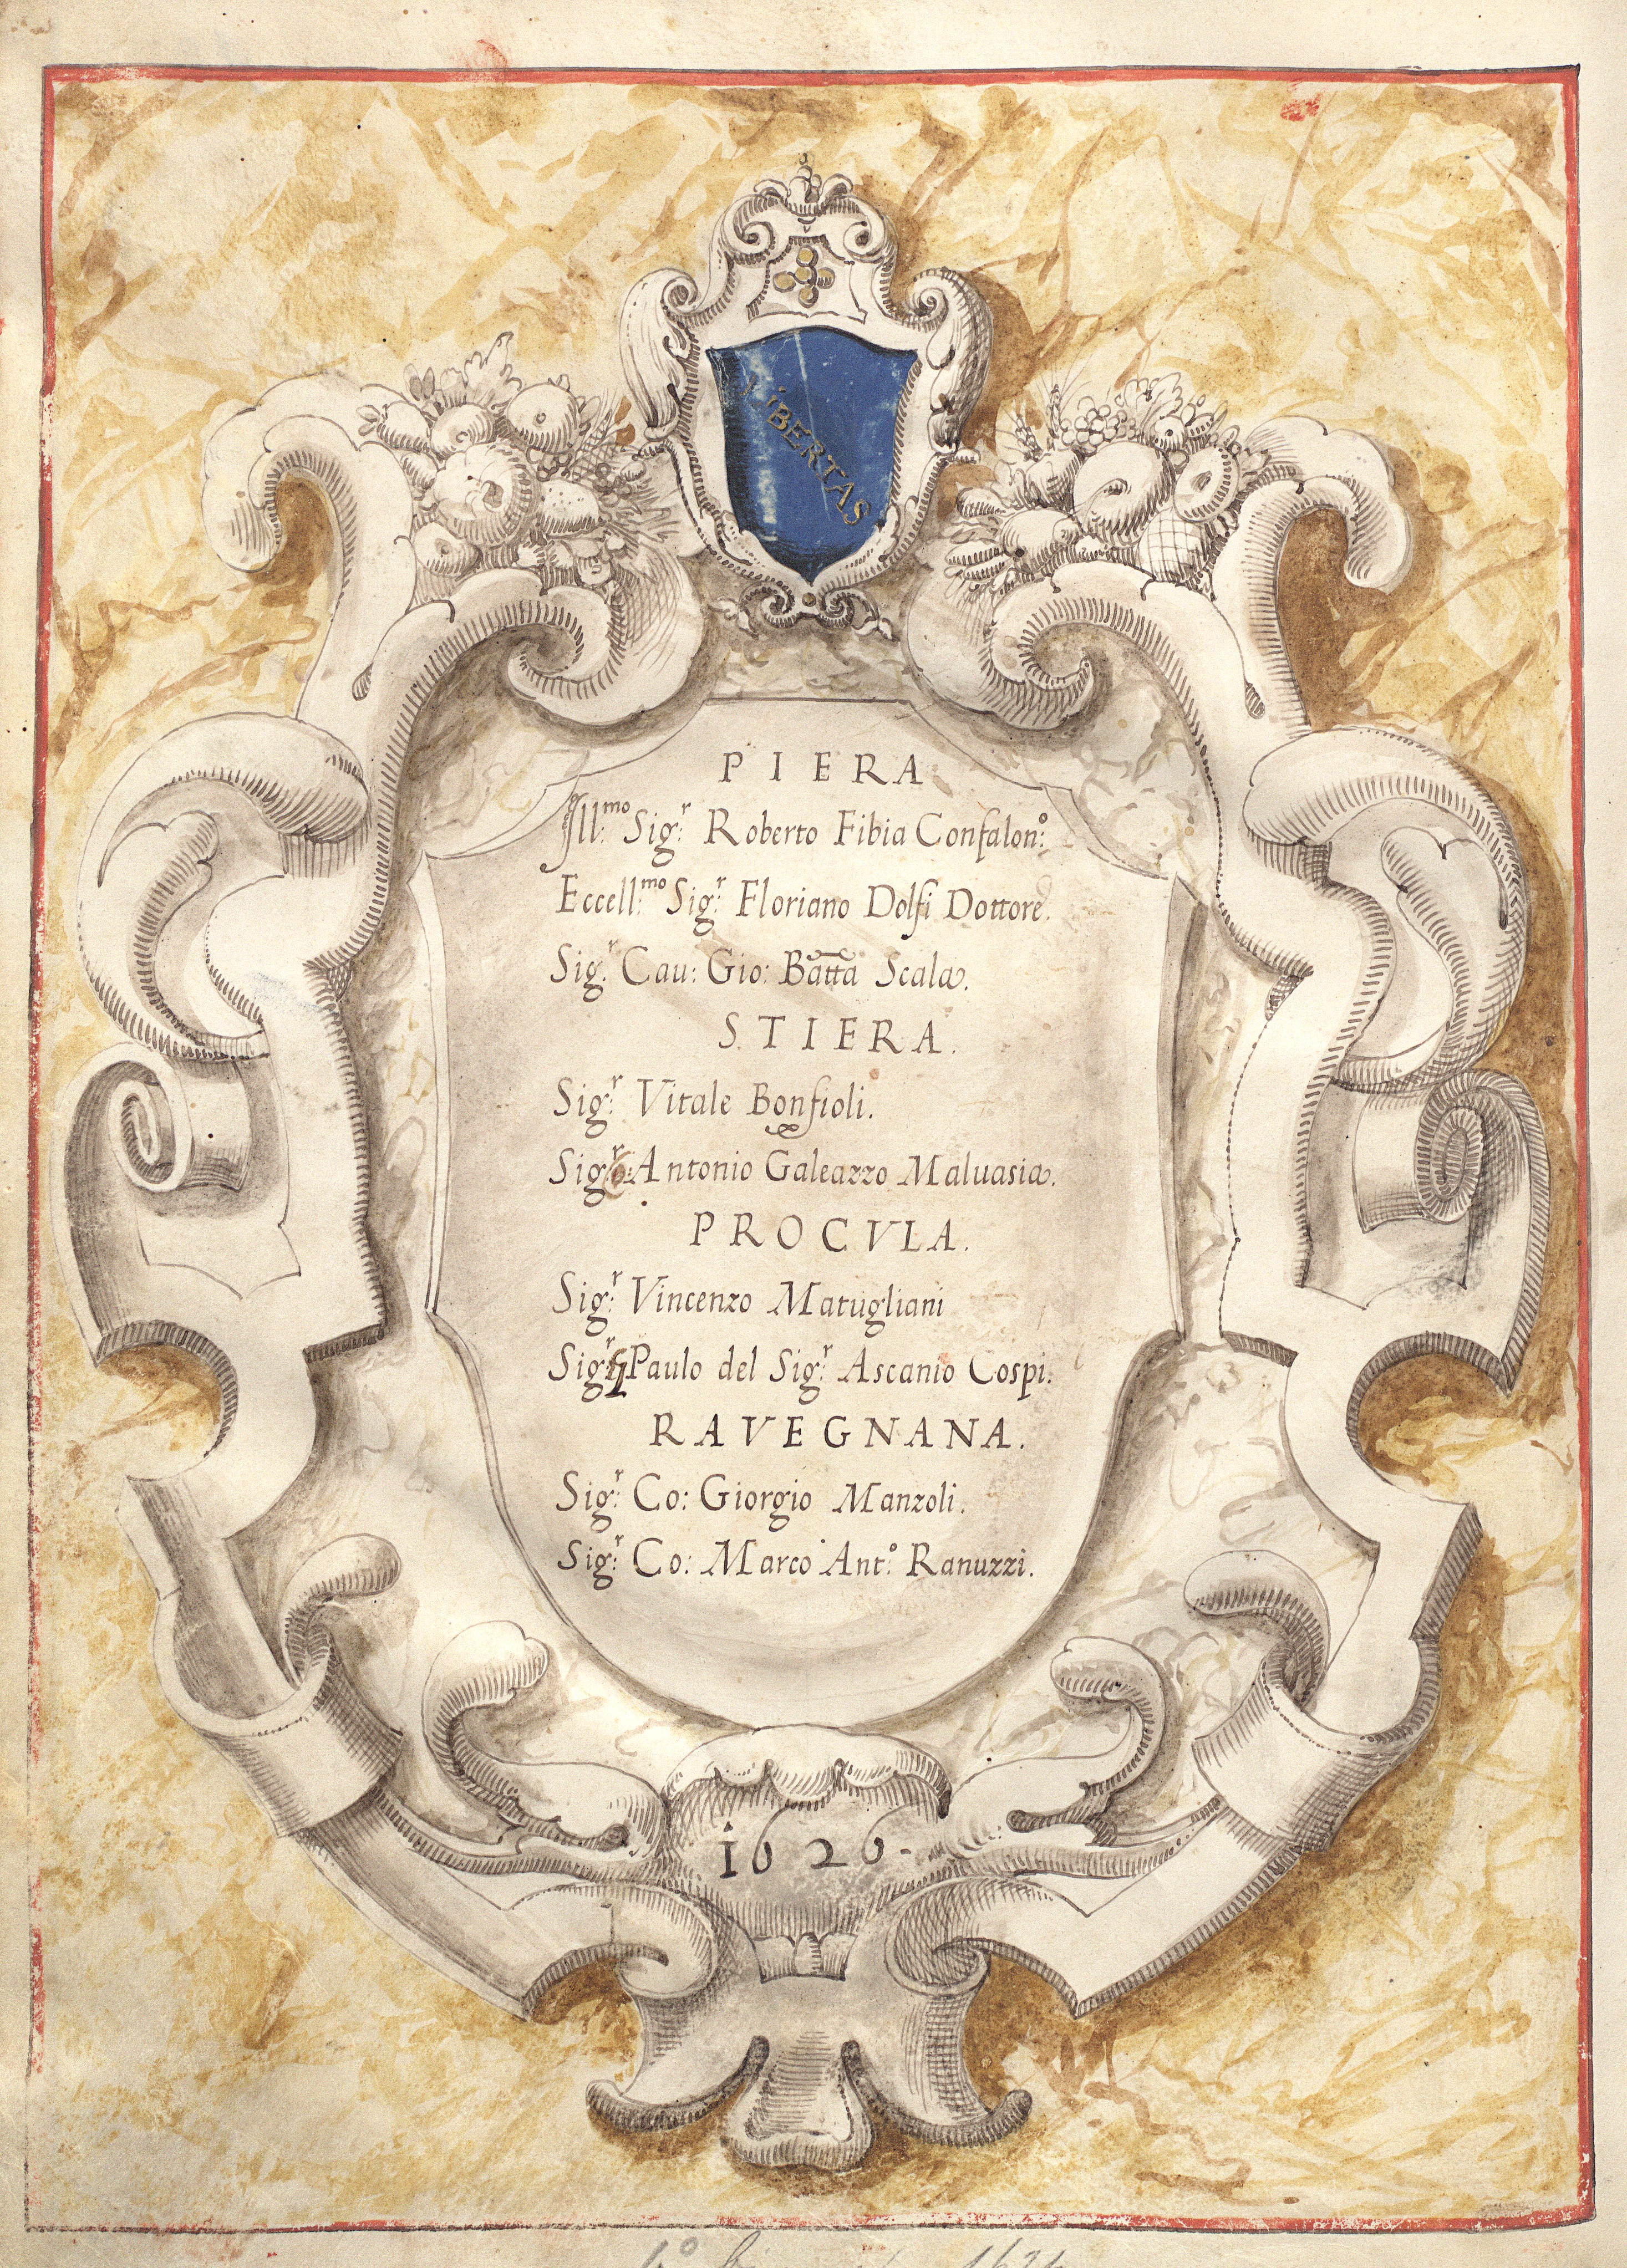 LIBERTAS
PIERA
Ill:mo Sig:r Roberto Fibia Confalon:o
Eccell:mo Sig:r Floriano Dolfi Dottore.
Sig:r Cau: Gio: Batta Scala.
STIERA.
Sig:r Vitale Bonfioli.
Sig:r Antonio Galeazzo Maluasia.
PROCVLA.
Sig:r Vincenzo Matugliani
Sig:r Paulo del Sig:r Ascanio Cospi.
RAVEGNANA.
Sig:r Co: Giorgio Manzoli.
Sig:r Co: Marco Ant:o Ranuzzi.
1626.